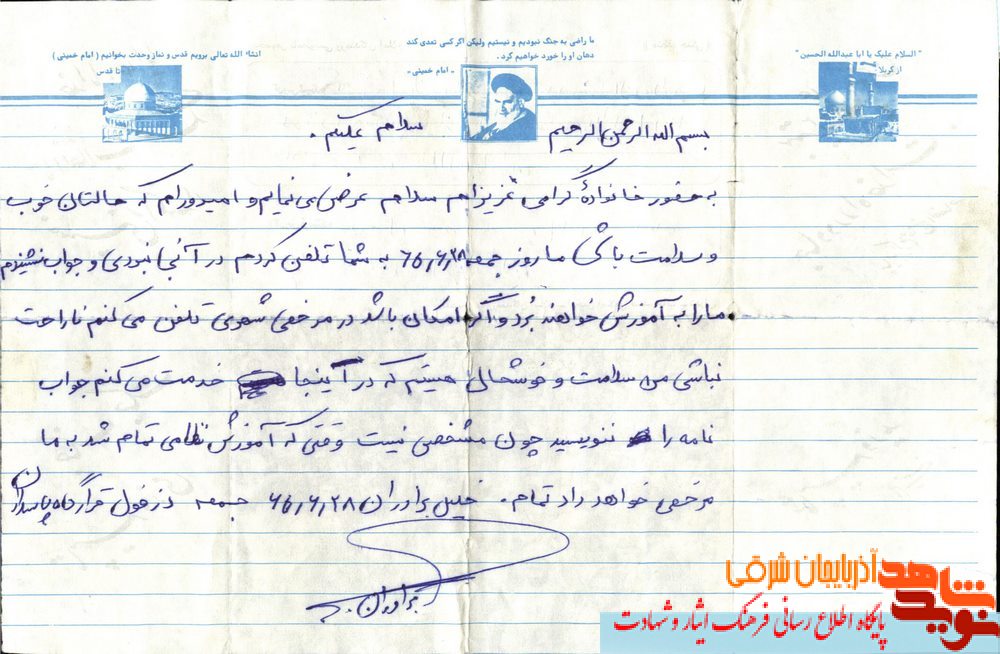 " السلام علیک یا ابا عبدالله الحسین "
از کربلا
ما راضی به جنگ نبودیم و نیستیم ولیکن اگر کسی تعدی کند
دهان او را خورد خواهیم کرد .
- امام خمینی -
انشاء الله تعالی برویم قدس و نماز وحدت بخوانیم ( امام خمینی )
تا قدس
بسم الله الرحمن الرحیم سلام علیکم .
به حضور خانوادهٔ گرامی عزیزم سلام عرض می نمایم و امیدوارم که حالتان خوب
و سلامت باشی ما روز جمعه ۶۵٫۶٫۲۸ به شما تلفن کردم در آنجا نبودی و جواب نشنیدم
ما را به آموزش خواهند بُرد و اگر امکان باشد در مرخصی شهری تلفن می کنم ناراحت
نباشی من سلامت و خوشحال هستم که در اینجا خدمت می کنم جواب
نامه را ننویسید چون مشخص نیست وقتی که آموزش نظامی تمام شد به ما
مرخصی خواهد داد تمام . خلیل برادران ۶۵٫۶٫۲۸ جمعه دزفول قرارگاه پاسداران
برادران
نوید شاهد
آذربایجان شرقی
پایگاه اطلاع رسانی فرهنگ ایثار و شهادت